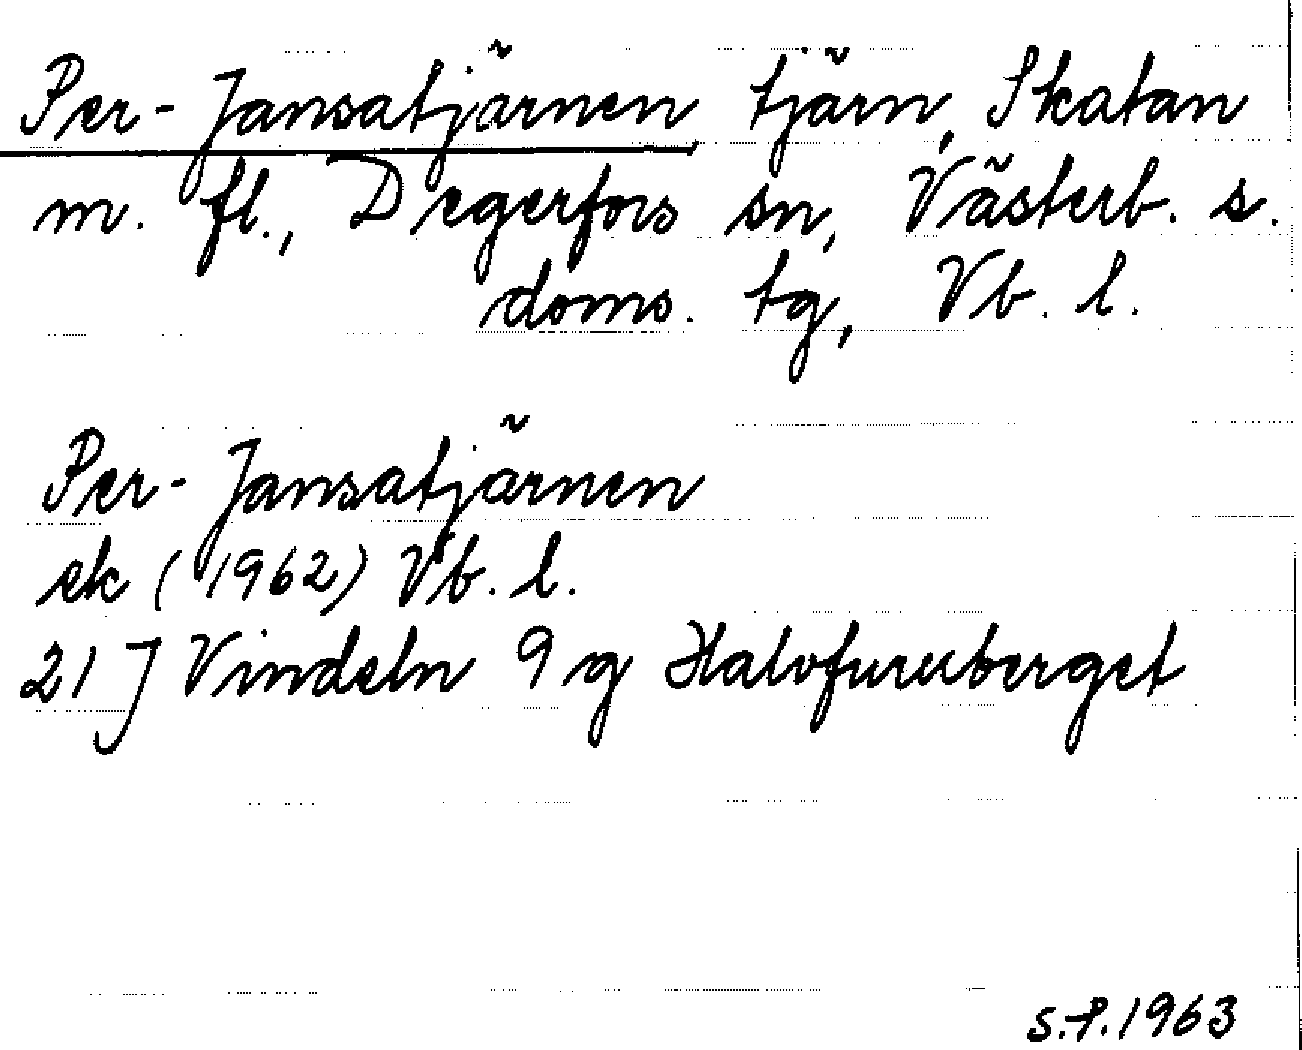 Per-Jansatjärnen tjärn, Skatan
m. fl., Degerfors sn, Västerb. s.
doms. tg, Vb. l.
Per-Jansatjärnen
ek (1962) Vb. l.
21 J Vindeln 9 g Halvfuruberget
S.P. 1963